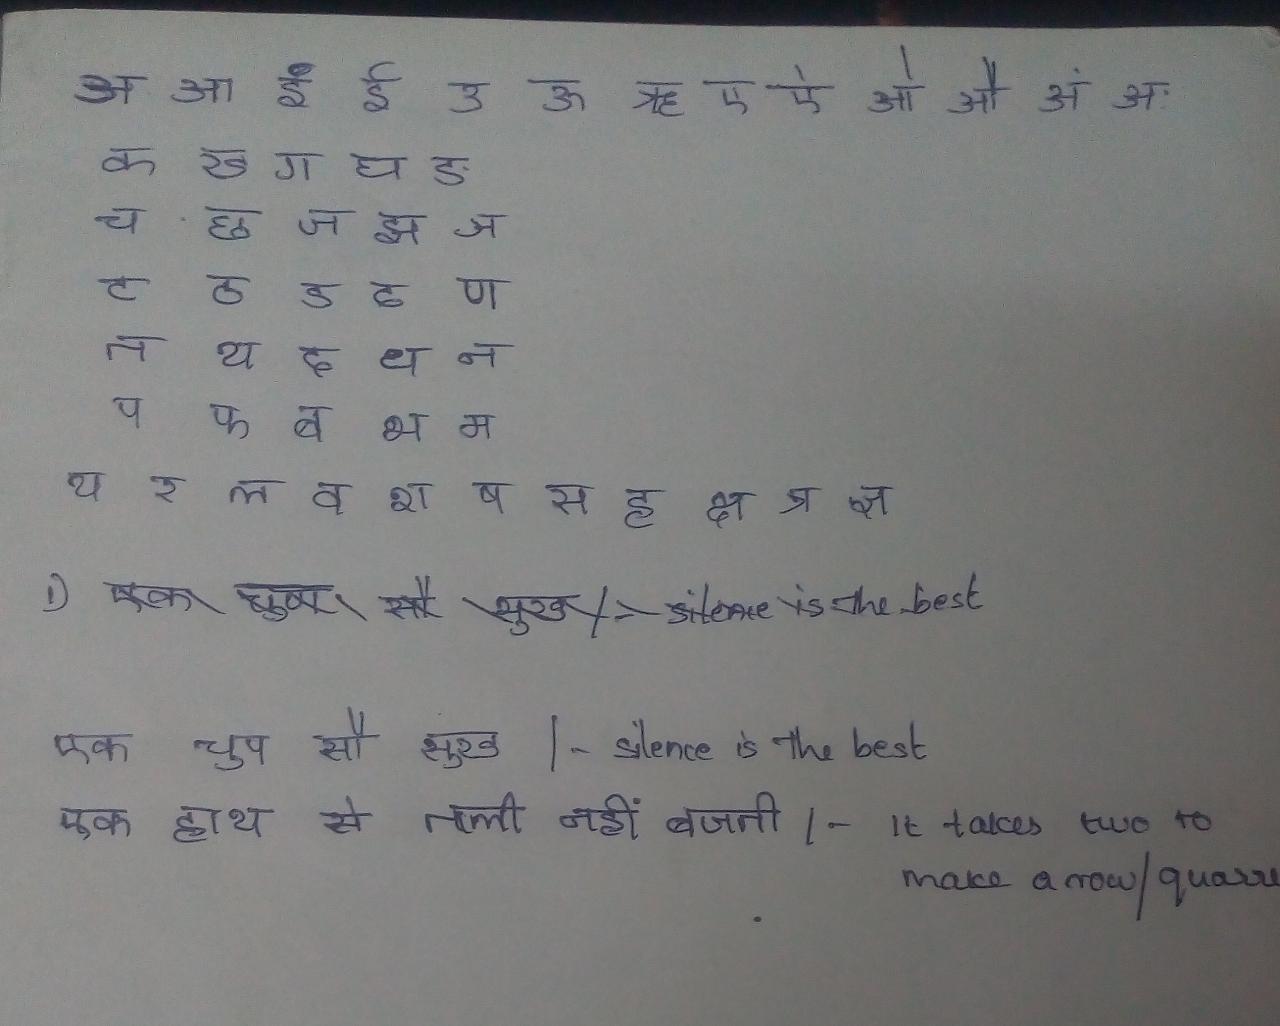 अ आ इ ई उ ऊ ऋ ए ऐ ओ औ अं अः
क ख ग घ ङ
च छ ज झ ञ
ट ठ ड ढ ण
त थ द ध न
प फ ब भ म
य र ल व श ष स ह क्ष त्र ज्ञ
1) एक चुप सौ सुख /:- silence is the best
एक चुप सौ सुख |- silence is the best
एक हाथ से ताली नहीं बजती /- It takes two to
make a row/quarre